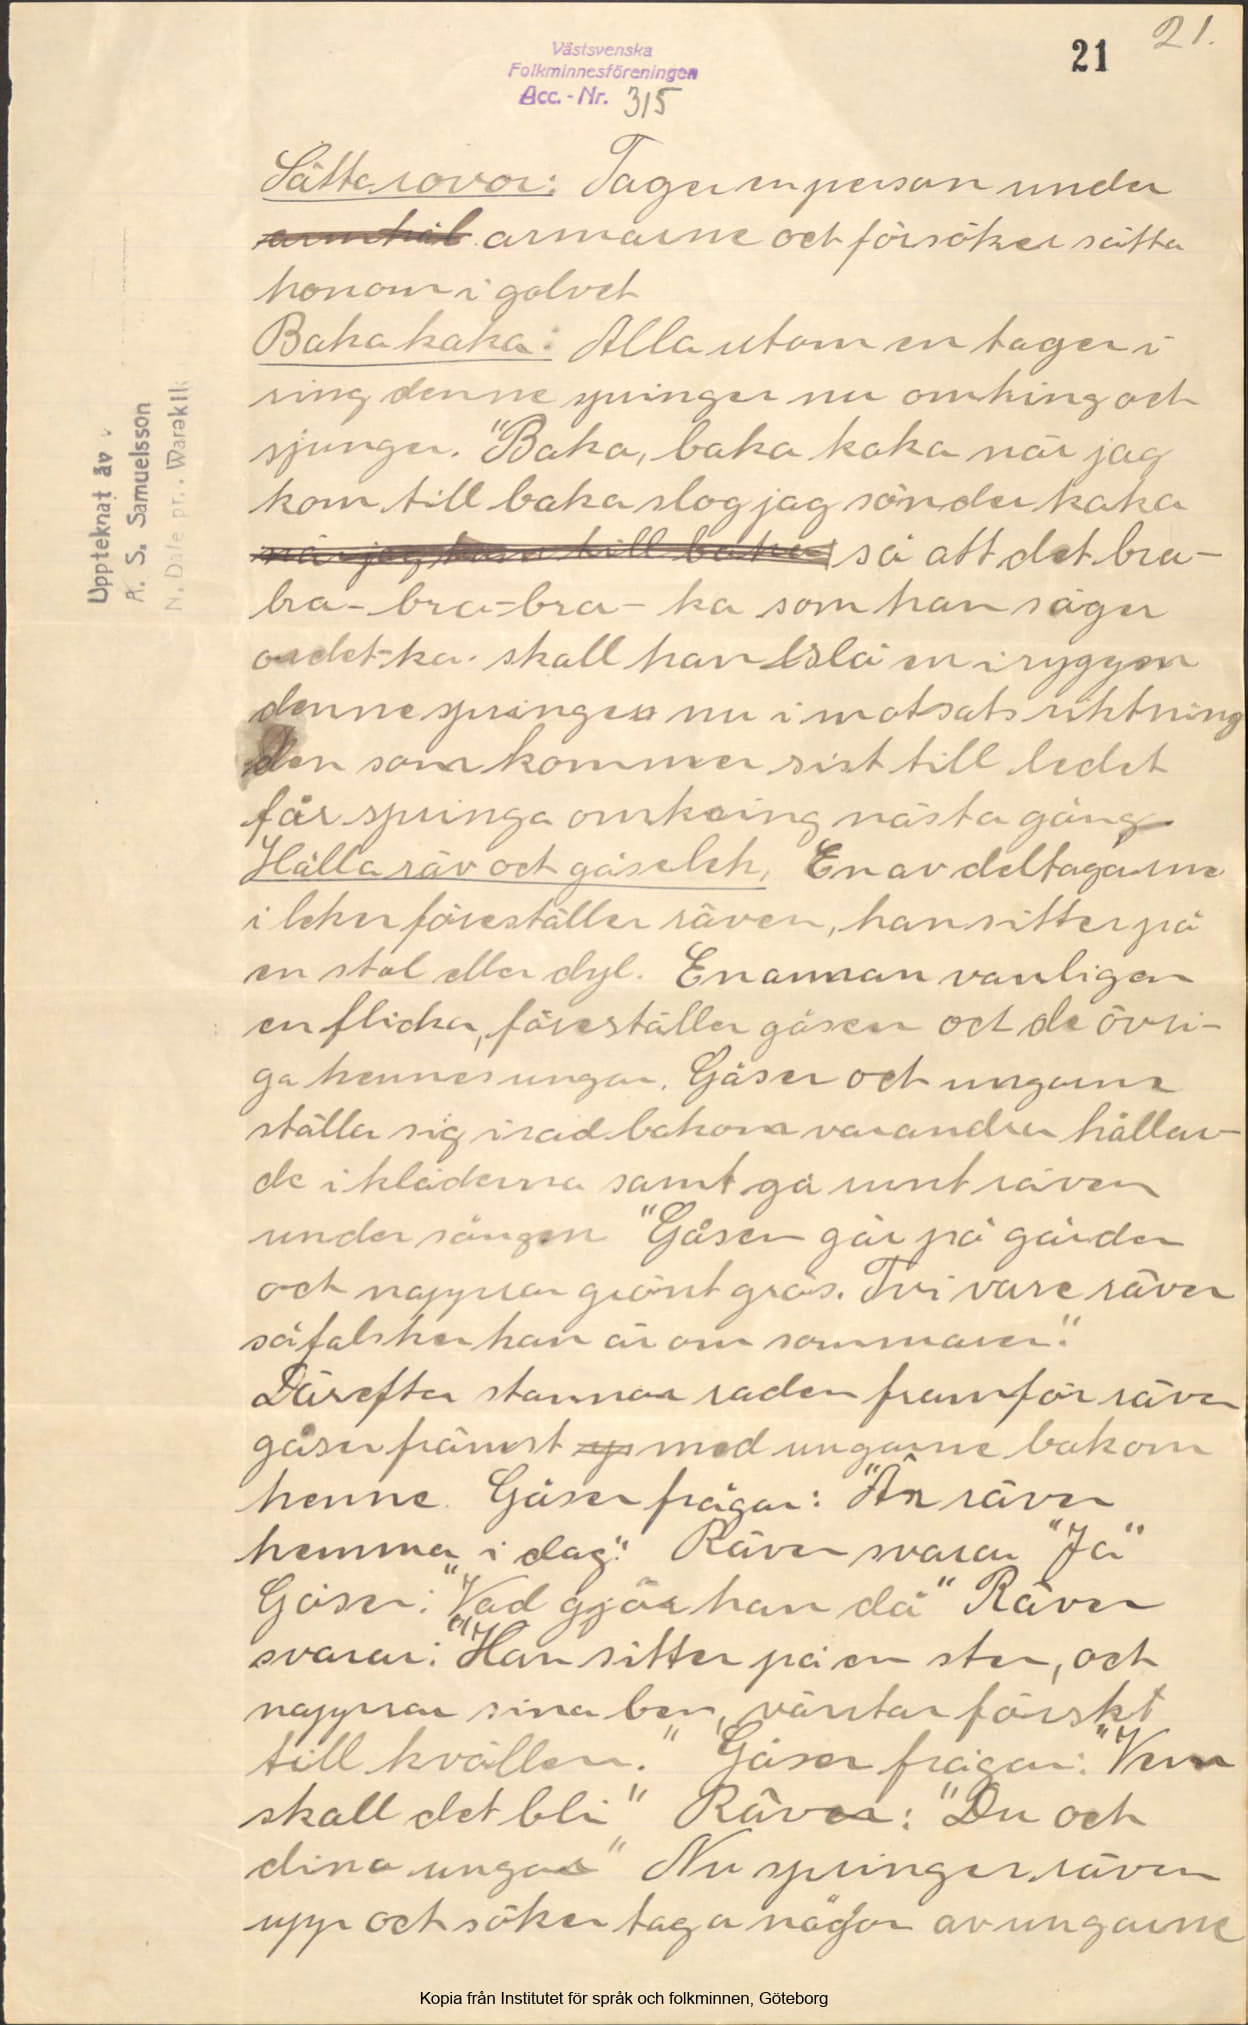 21.
21
Västsvenska
Folkminnesföreningen
Acc.-Nr. 315
Sätta rovor: Tager en person under
armhål armarne och försöker sätta
honom i golvet
Baka kaka: Alla utom en tager i
ring denne springer nu omkring och
sjunger. "Baka, baka kaka när jag
kom till baka slog jag sönder kaka
när jag kom till baka så att det bra-
bra-bra-bra-ka som han säger
ordet-ka. skall han slå en i ryggen
denne springer nu i motsats riktning
den som kommer sist till ledet
får springa omkring nästa gång
Hålla räv och gåselek, En av deltagarne
i leken föreställer räven, han sitter på
en stol eller dyl. En annan vanligen
en flicka, föreställer gåsen och de övri-
ga hennes ungar. Gåsen och ungarne
ställa sig i rad bakom varandra hållan-
de i kläderna samt gå runt räven
under sången "Gåsen går på gården
och nappar grönt gräs. Tvi vare räven
så falsker han är om sommaren."
Därefter stannar raden framför räven
gåsen främst med ungarne bakom
henne. Gåsen frågar: "Är räven
hemma i dag." Räven svarar "Ja"
Gåsen: "Vad gjör han då" Räven
svarar: "Han sitter på en sten, och
nappar sina ben, väntar färskt
till kvällen." Gåsen frågar: "Vem
skall det bli" Räven: "Du och
dina ungar" Nu springer räven
upp och söker taga någon av ungarne
Uppteknat av
A. S. Samuelsson
N. Dale pr. Wara
Kopia från Institutet för språk och folkminnen, Göteborg